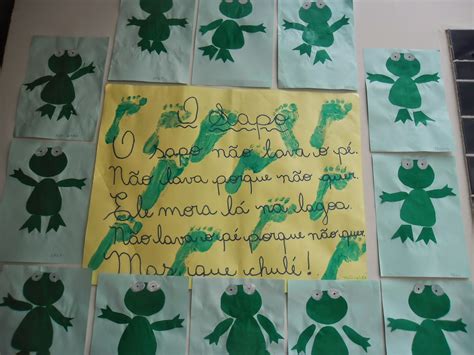 O Sapo
O sapo não lava o pé.
Não lava porque não quer.
Ele mora lá na lagoa.
Não lava o pé porque não quer.
Mas que chulé!